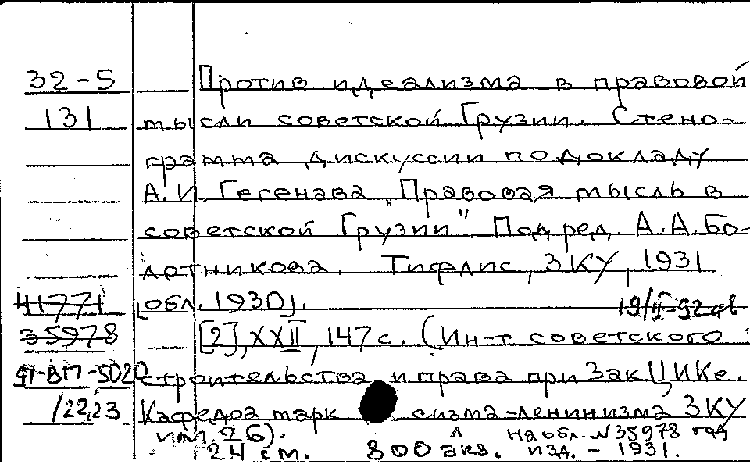 32-5 Против идеализма в правовой
131 мысли советской Грузии. Стено-
грамма дискуссии по докладу
А.И. Гегенава „Правовая мысль в
советской Грузии". Под ред. А.А. Бо-
лотникова. Тифлис, ЗКУ, 1931
41771 [обл. 1930].
35978 [2], XXII, 147 с. (Ин-т советского
строительства и права при Зак ЦИКе.
/22,23 Кафедра марк сизма-ленинизма ЗКУ
им. 26).
24 см. 800 экз. На обл. №35978 год
изд. - 1931.